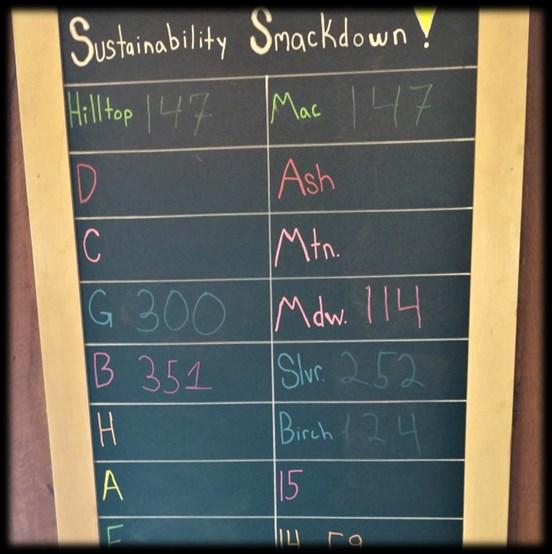 Sustainability Smackdown!
Hilltop 147 Mac 147
D Ash
C Mtn.
G 300 Mdw. 114
B 351 Slvr. 252
H Birch 124
A 15
14 59